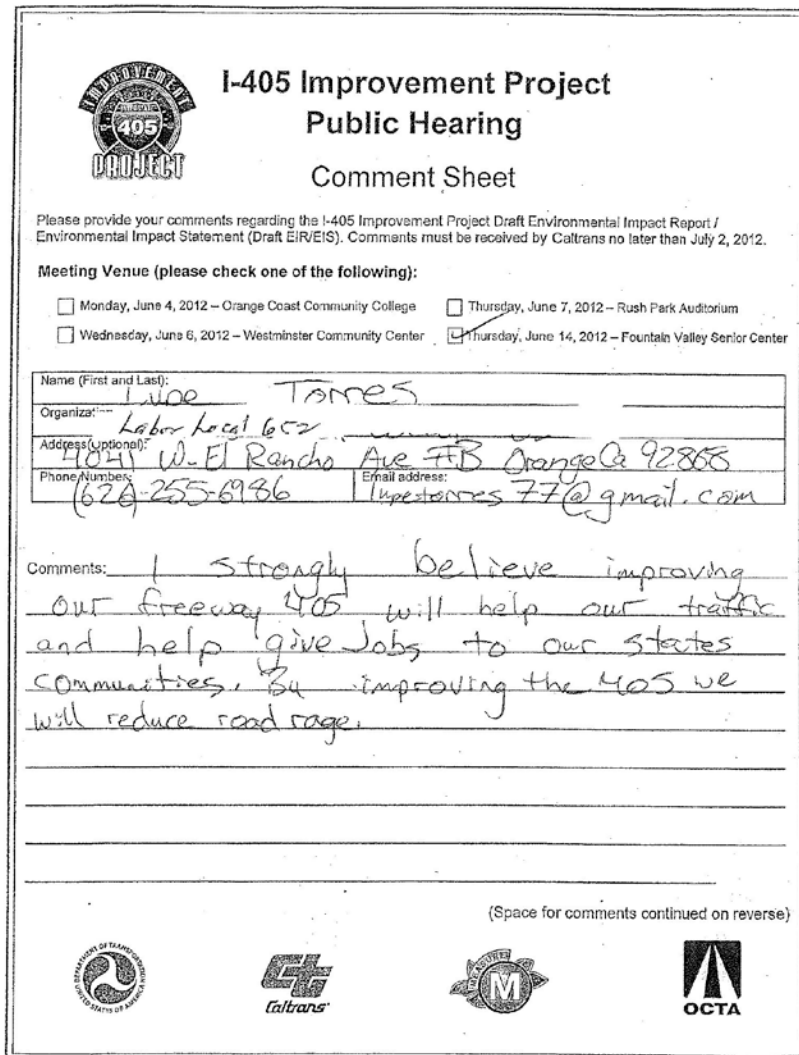 IMPROVEMENT
405
PROJECT
I-405 Improvement Project
Public Hearing
Comment Sheet
Please provide your comments regarding the I-405 Improvement Project Draft Environmental Impact Report /
Environmental Impact Statement (Draft EIR/EIS). Comments must be received by Caltrans no later than July 2, 2012.
Meeting Venue (please check one of the following):
Monday, June 4, 2012 – Orange Coast Community College
Thursday, June 7, 2012 – Rush Park Auditorium
Wednesday, June 6, 2012 – Westminster Community Center
Thursday, June 14, 2012 – Fountain Valley Senior Center
Name (First and Last): Lupe Torres
Labor Local 652
Address(optional): 4041 W. El Rancho Ave #B Orange Ca 92868
Phone Number: (626)-255-6986
Email address: lupestorres77@gmail.com
Comments: I strongly believe improving
our freeway 405 will help our traffic
and help give Jobs to our states
communities. By improving the 405 we
will reduce road rage.
(Space for comments continued on reverse)
DEPARTMENT OF TRANSPORTATION
UNITED STATES OF AMERICA
Caltrans
MEASURE
M
OCTA